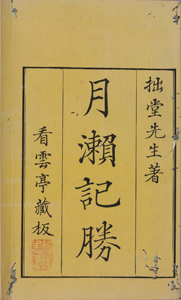 拙堂先生著
月瀨記勝
看雲亭藏板